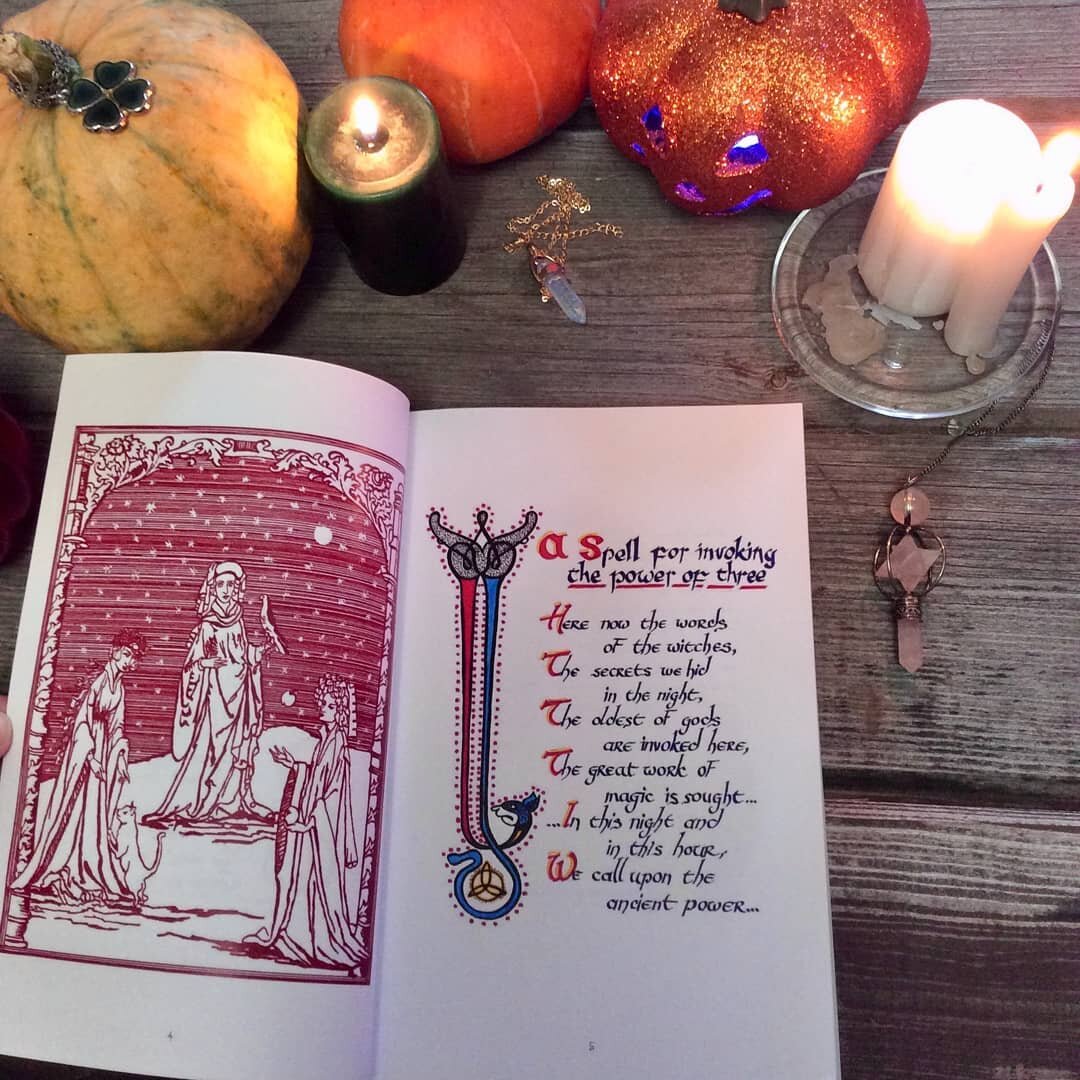 A Spell for invoking
the power of three
Here now the words
of the witches,
The secrets we hid
in the night,
The oldest of gods
are invoked here,
The great work of
magic is sought...
...In this night and
in this hour,
We call upon the
ancient power...
4
5